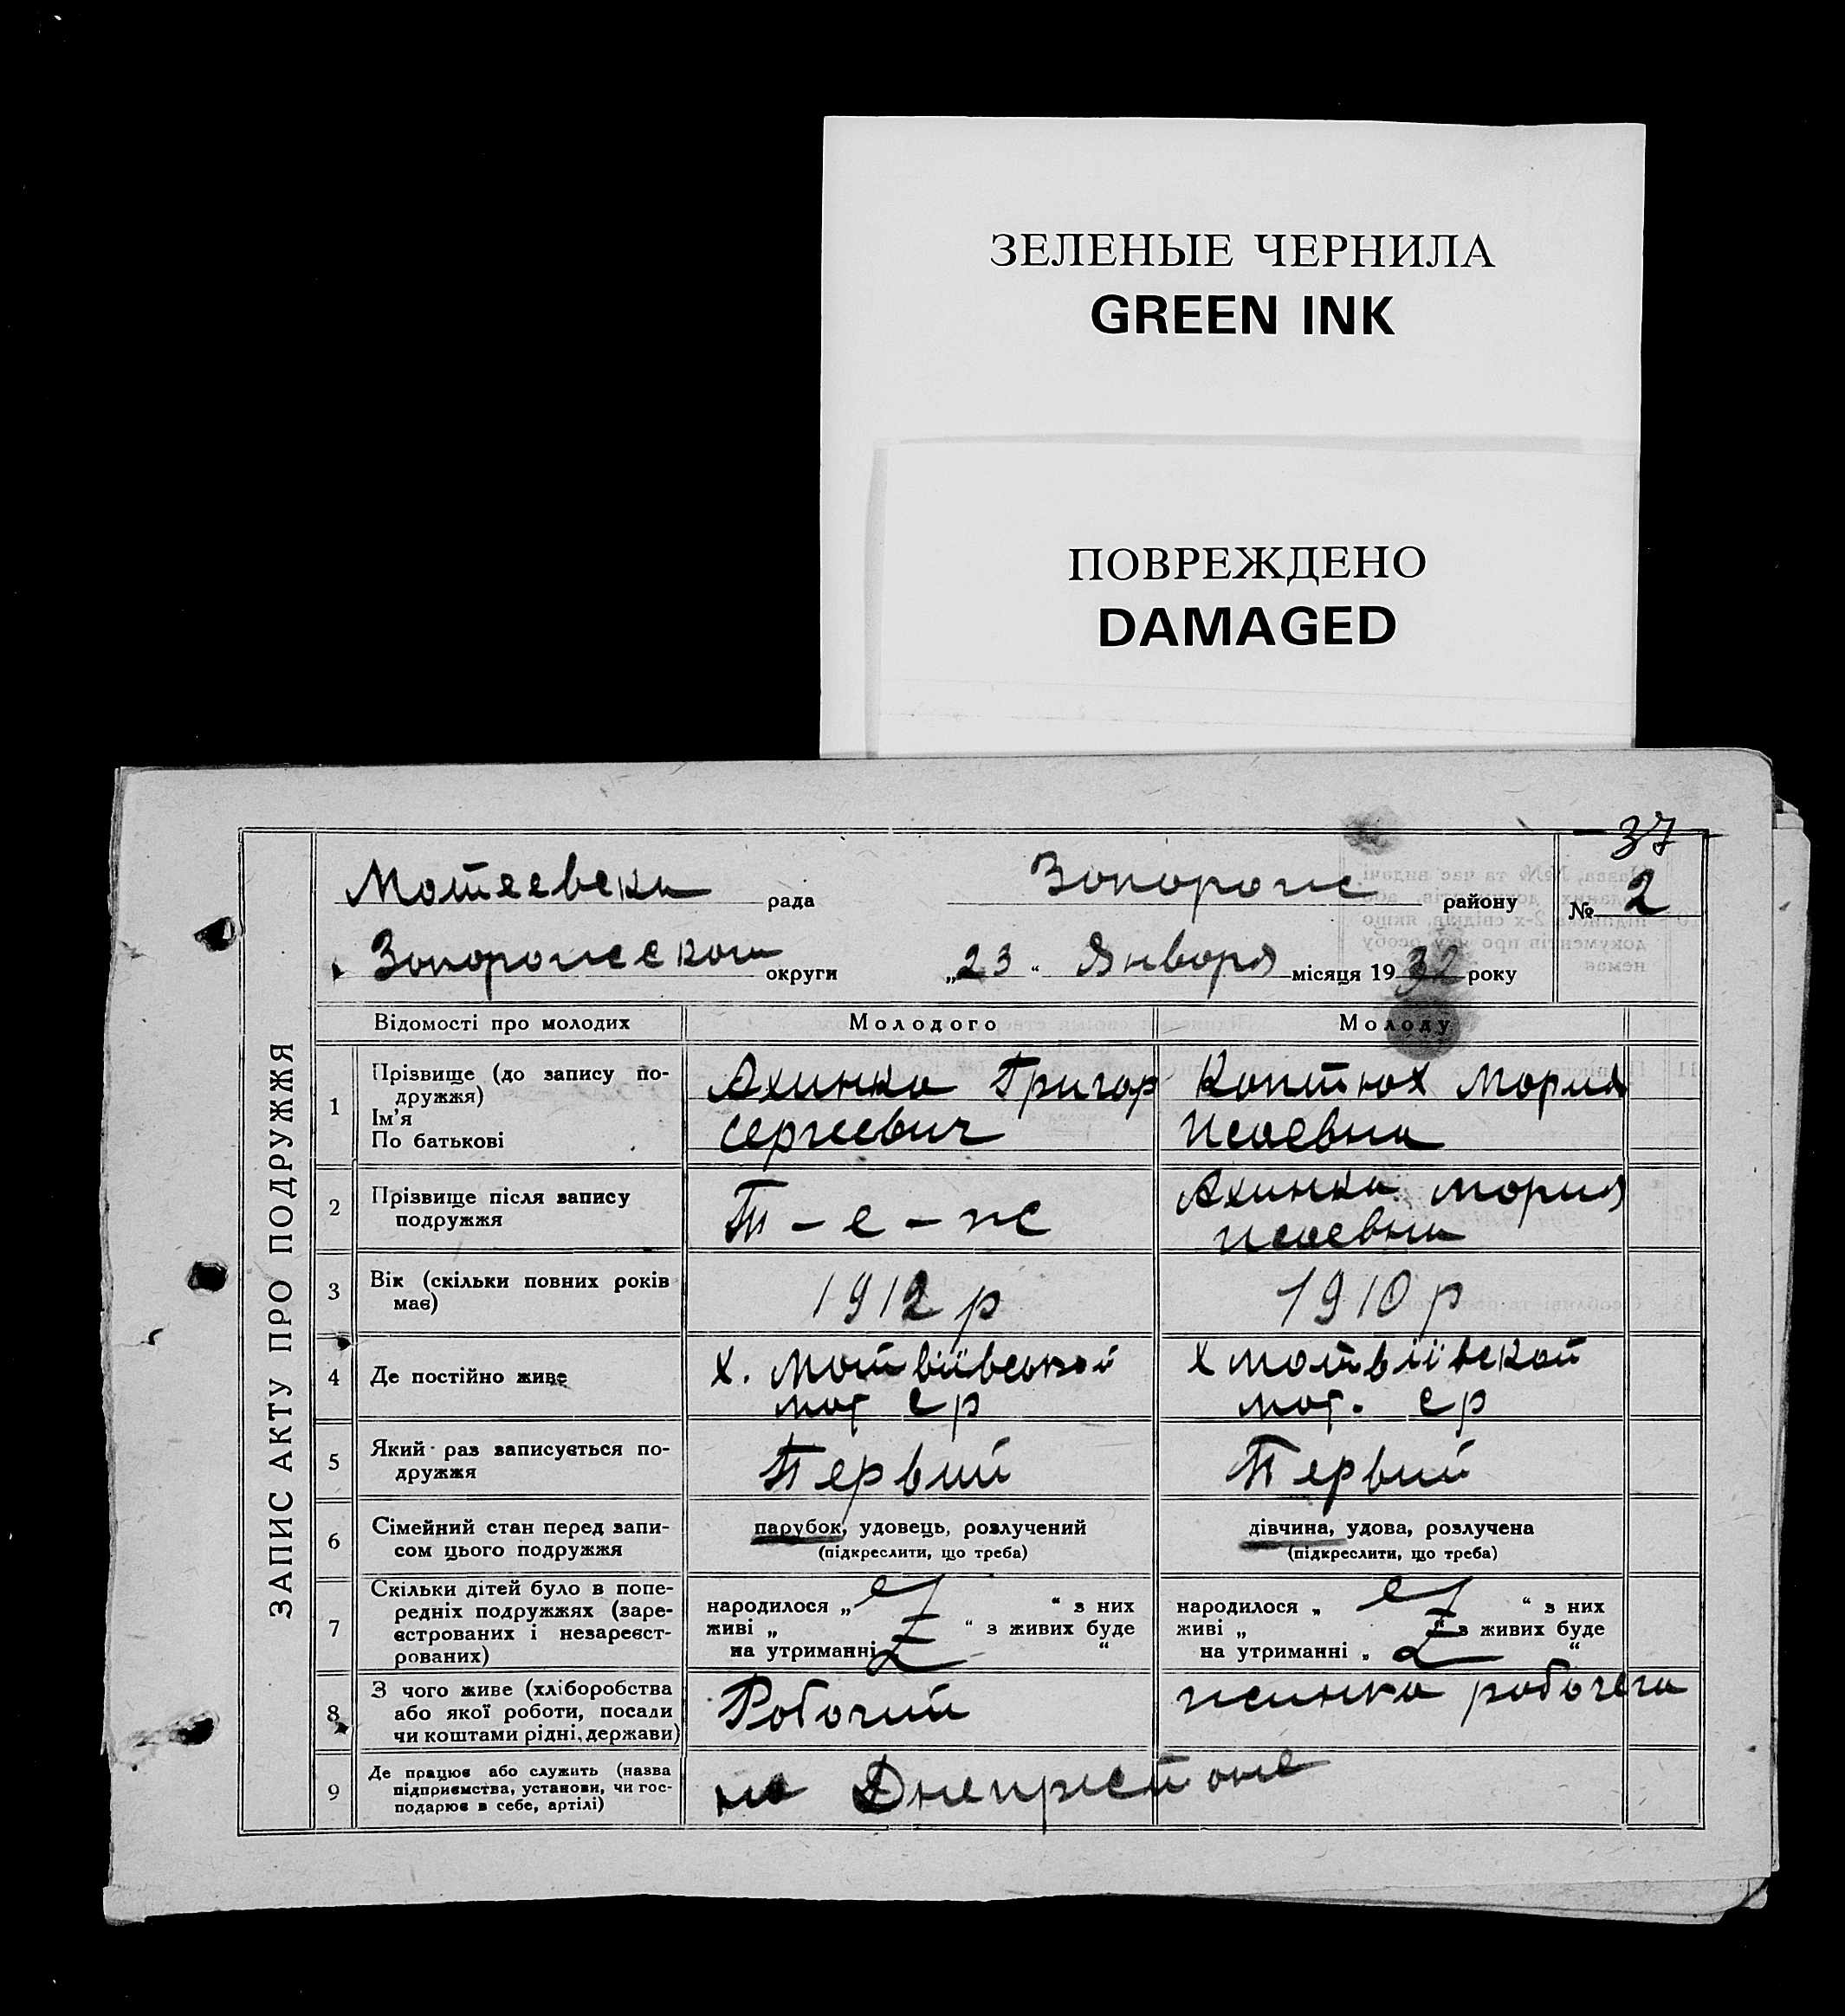 ЗЕЛЕНЫЕ ЧЕРНИЛА
GREEN INK
ПОВРЕЖДЕНО
DAMAGED
37
ЗАПИС АКТУ ПРО ПОДРУЖЖЯ
Матеевска рада Запорож району № 2
Запорожской округи „23“ Января місяця 1932 року
Відомості про молодих Молодого Молоду
1 Прізвище (до запису подружжя)
Ім'я
По батькові
Ахинка Григор
Сергеевич
Коптюх Мария
Исаевна
2 Прізвище після запису
подружжя
Т - е - ж
Ахинка Мария
Исаевна
3 Вік (скільки повних років
має)
1912 р
1910 р
4 Де постійно живе
х. Матвіївської
мат с р
х Матвіївской
мат. с р
5 Який раз записується по-
дружжя
Первий
Первий
6 Сімейний стан перед запи-
сом цього подружжя
парубок, удовець, розлучений
(підкреслити, що треба)
дівчина, удова, розлучена
(підкреслити, що треба)
7 Скільки дітей було в попе-
редніх подружжях (заре-
єстрованих і незареєст-
рованих)
народилося „ “ з них
живі „ “ з живих буде
на утриманні „ “
народилося „ “ з них
живі „ “ з живих буде
на утриманні „ “
8 З чого живе (хліборобства
або якої роботи, посади
чи коштами рідні, держави)
Рабочий
жинка рабочега
9 Де працює або служить (назва
підприємства, установи, чи гос-
подарює в себе, артілі)
на